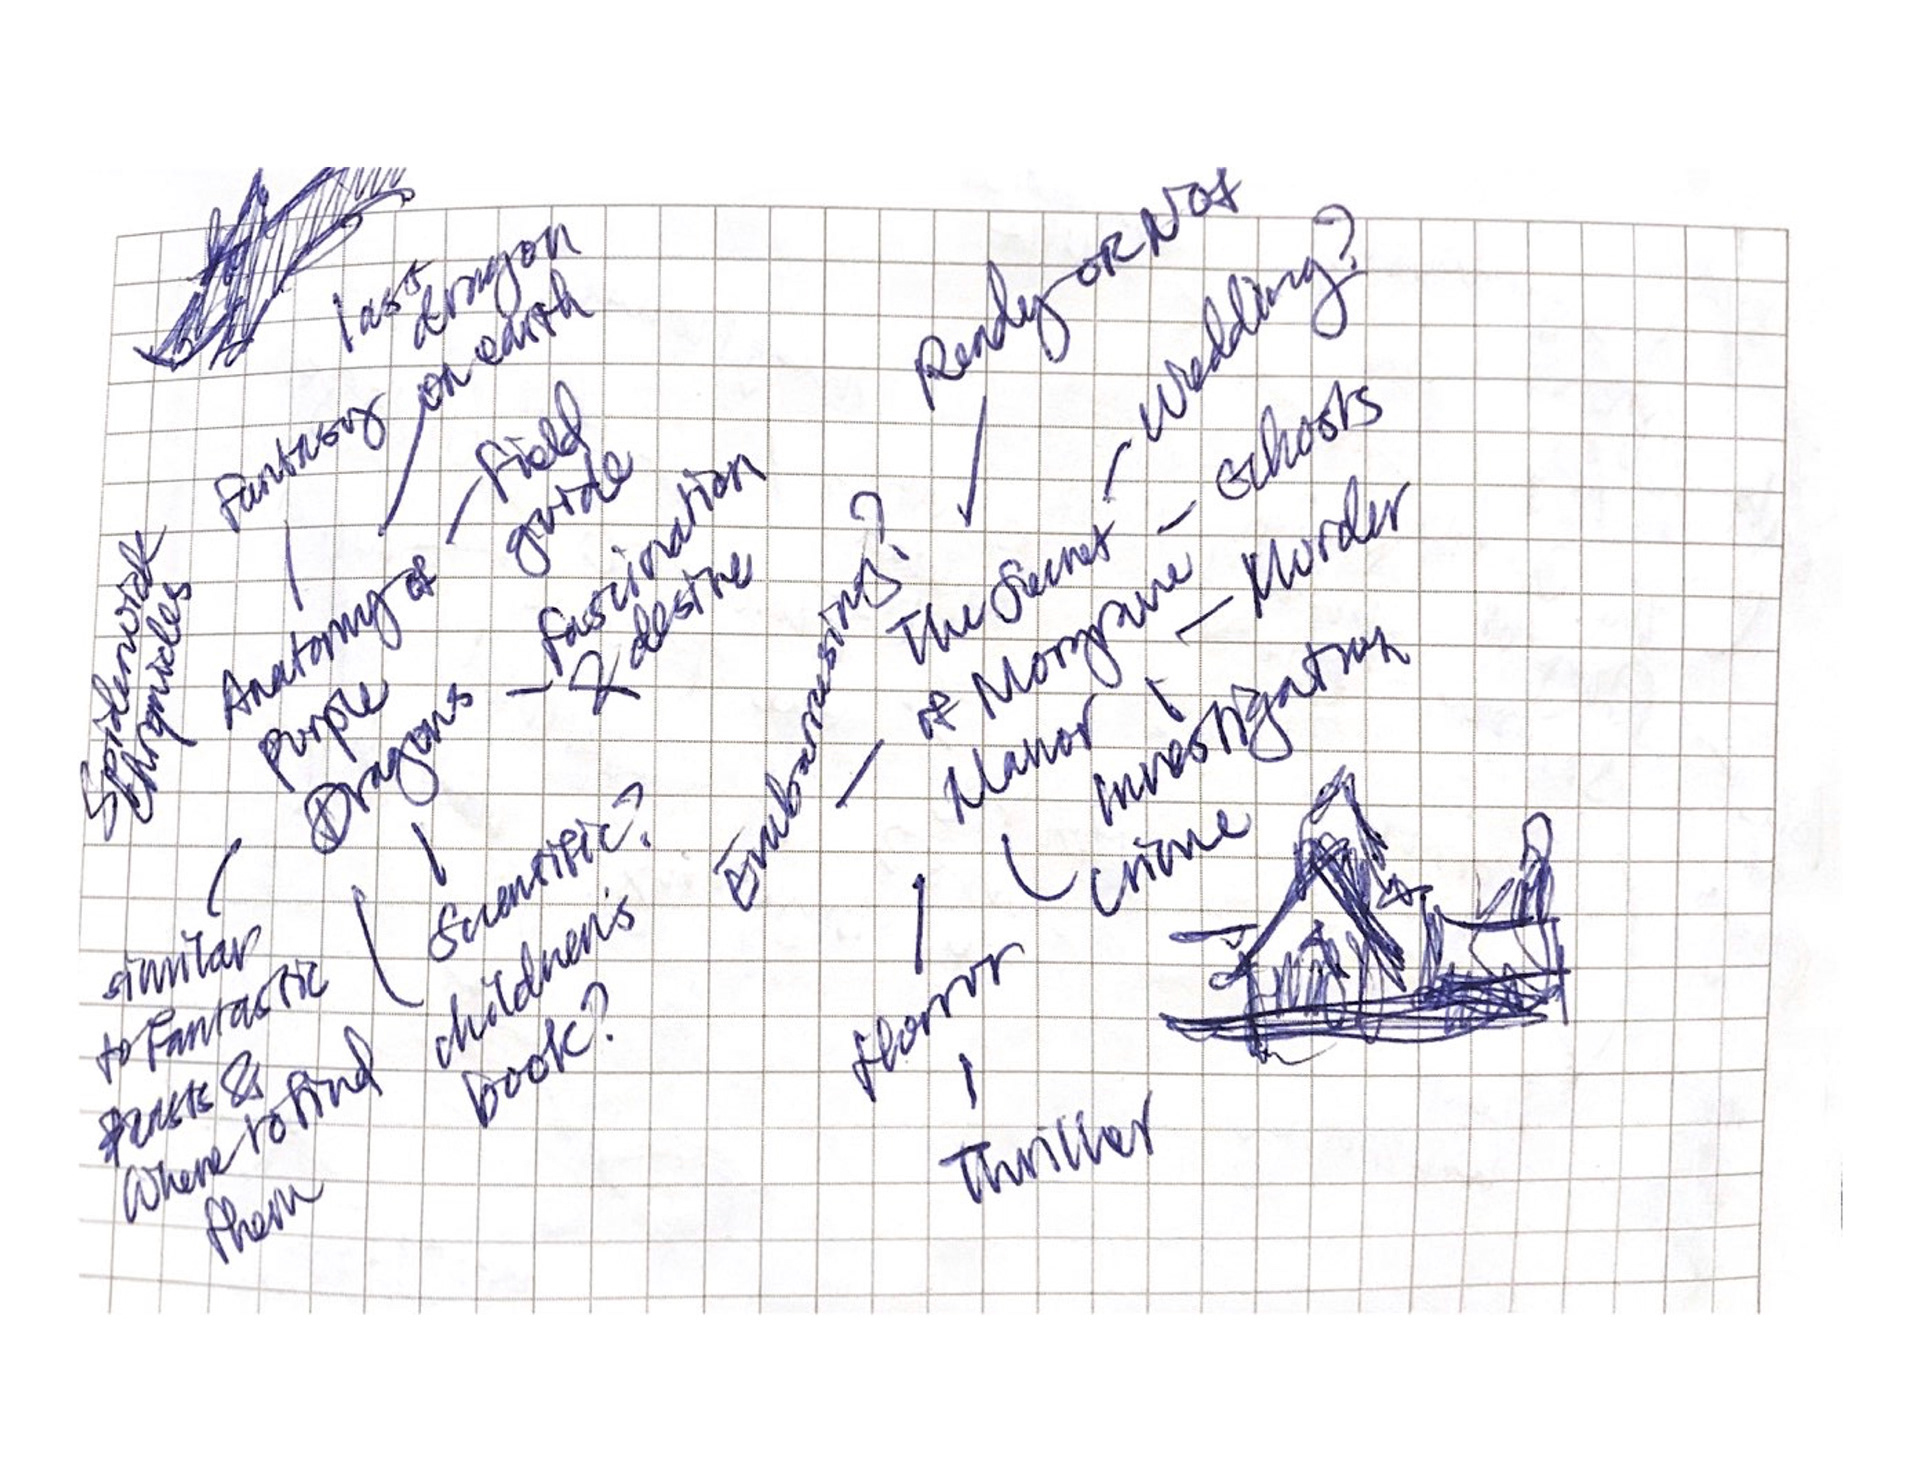 last
dragon
on earth
Fantasy
Field
guide
Spiderwick
Chronicles
Anatomy of
Purple
Dragons
fascination
& desire
Scientific?
children's
book?
similar
to Fantastic
Beasts &
Where to find
them
Ready OR Not
Wedding?
Ghosts
Murder
The Secret
of Morgrave
Manor
Embarressing?
investigation
crime
Horror
Thriller